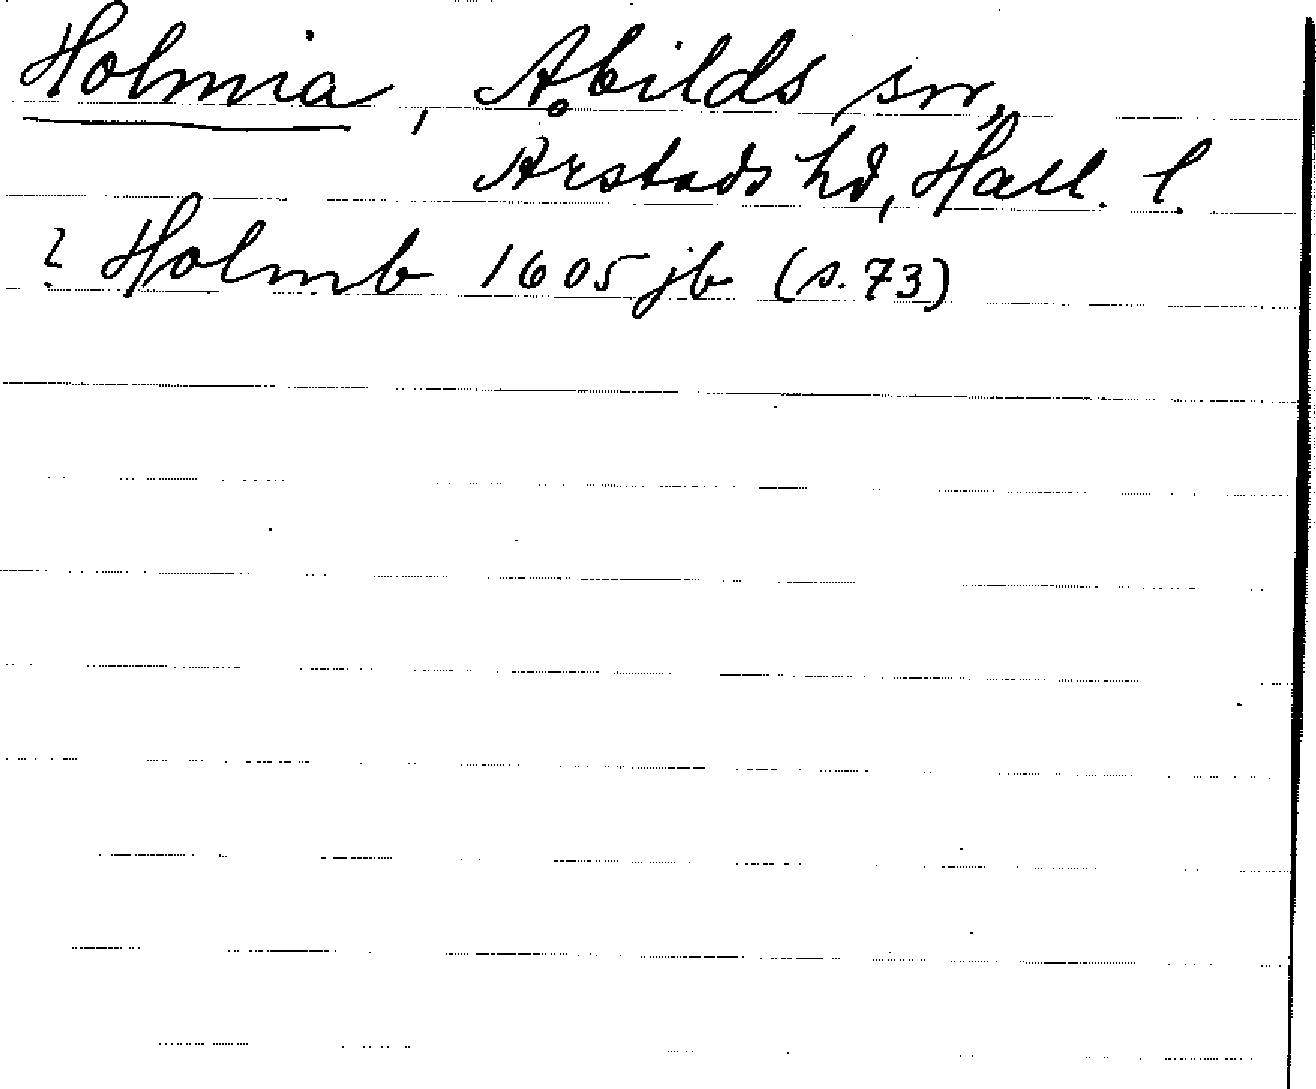 Holmia, Abilds sn,
Årstads hd, Hall. l.
? Holmb 1605 jb (s. 73)